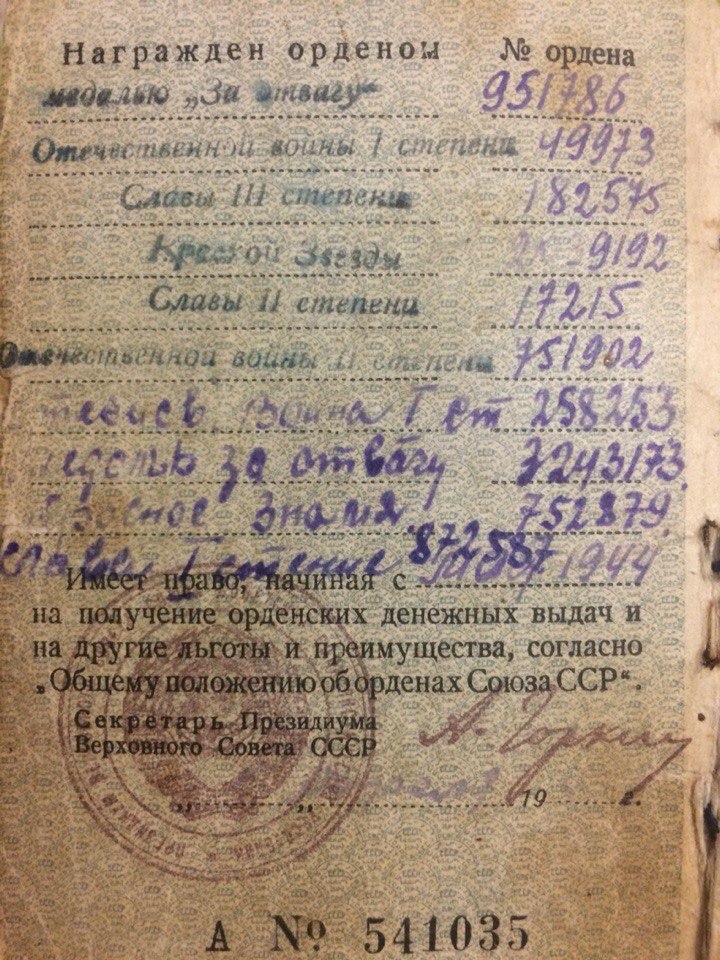 Награжден орденом № ордена
медалью „За отвагу“ 951786
Отечественной войны I степени 49973
Славы III степени 182575
Красной Звезды 9192
Славы II степени 17215
Отечественной войны II степени 751902
Война I ст 258253
за отвагу 3243173
Знамя 752879
I степени 872587
Имеет право, начиная с 1944
на получение орденских денежных выдач и
на другие льготы и преимущества, согласно
„Общему положению об орденах Союза ССР“.
Секретарь Президиума
Верховного Совета СССР А. Горкин
„ „ 19 г.
А № 541035